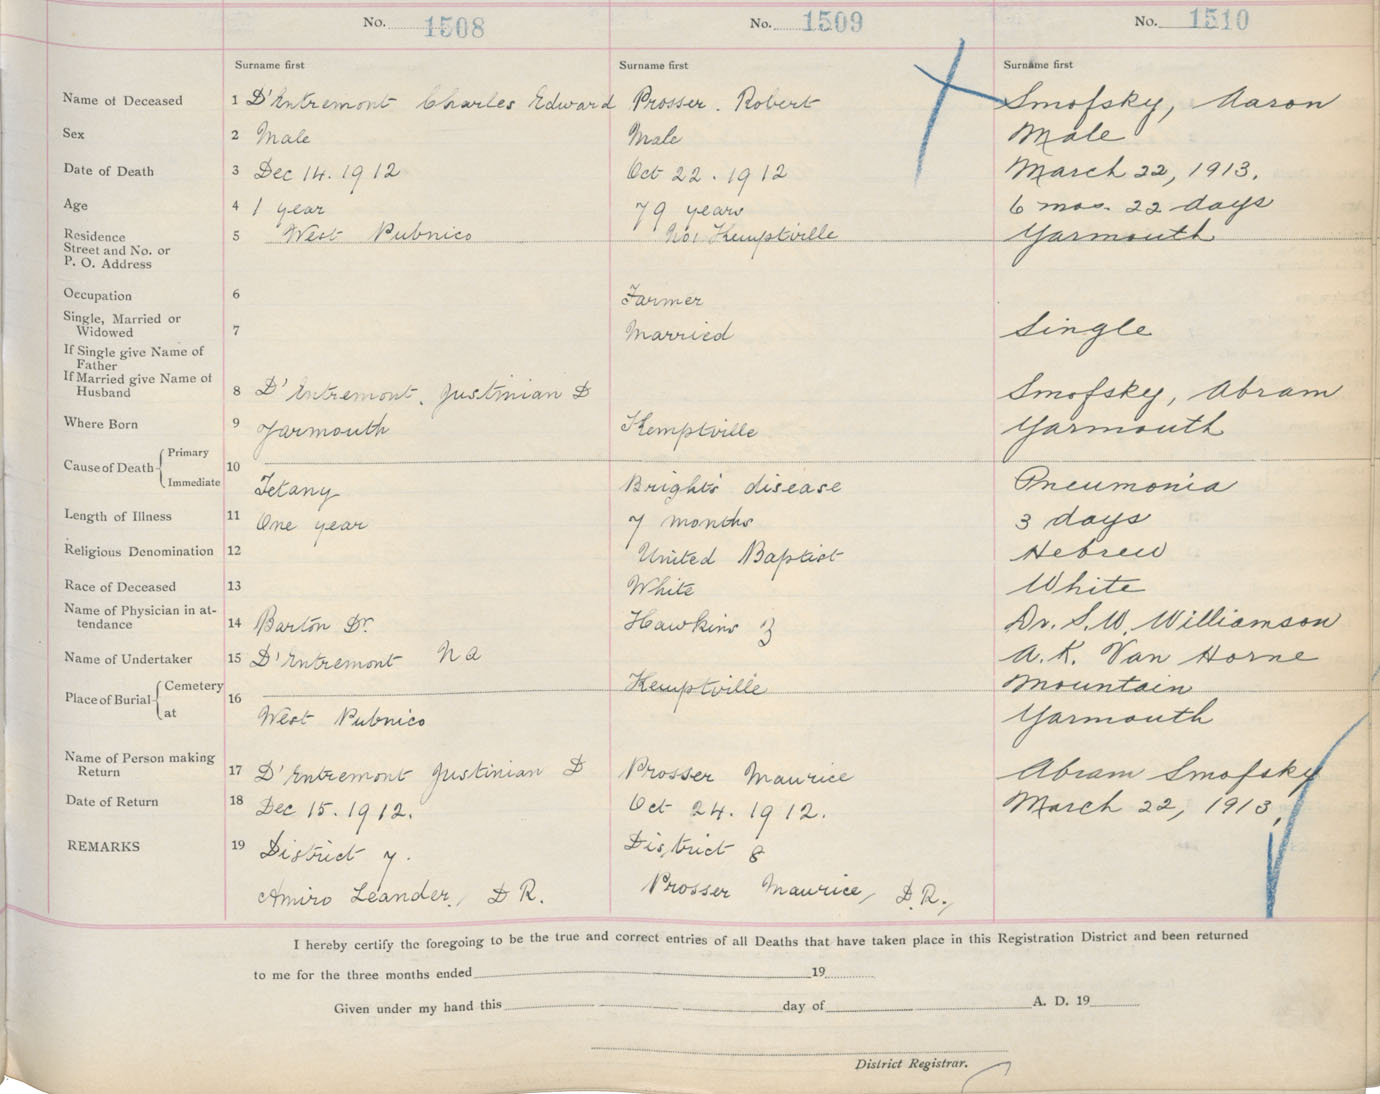 No. 1508 No. 1509 No. 1510
Surname first Surname first Surname first
Name of Deceased 1 D'Entremont Charles Edward Prosser. Robert Smofsky, Aaron
Sex 2 Male Male Male
Date of Death 3 Dec 14. 1912 Oct 22. 1912 March 22, 1913.
Age 4 1 year 79 years 6 mos. 22 days
Residence 5 West Pubnico No. Kemptville Yarmouth
Street and No. or
P. O. Address
Occupation 6 Farmer
Single, Married or
Widowed 7 Married Single
If Single give Name of
Father
If Married give Name of
Husband 8 D'Entremont. Justinian D Smofsky, Abram
Where Born 9 Yarmouth Kemptville Yarmouth
Cause of Death Primary
10
Immediate Tetany Bright's disease Pneumonia
Length of Illness 11 One year 7 months 3 days
Religious Denomination 12 United Baptist Hebrew
Race of Deceased 13 White White
Name of Physician in at-
tendance 14 Barton Dr. Hawkins Dr. S. W. Williamson
Name of Undertaker 15 D'Entremont A. K. Van Horne
Place of Burial Cemetery 16 Kemptville Mountain
at West Pubnico Yarmouth
Name of Person making
Return 17 D'Entremont Justinian D Prosser Maurice Abram Smofsky
Date of Return 18 Dec 15. 1912. Oct 24. 1912. March 22, 1913,
REMARKS 19 District 7. District 8
Amiro Leander, D R. Prosser Maurice, D. R.,
I hereby certify the foregoing to be the true and correct entries of all Deaths that have taken place in this Registration District and been returned
to me for the three months ended 19
Given under my hand this day of A. D. 19
District Registrar.